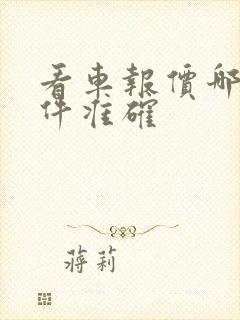 看車報價哪
件准確
蒋莉